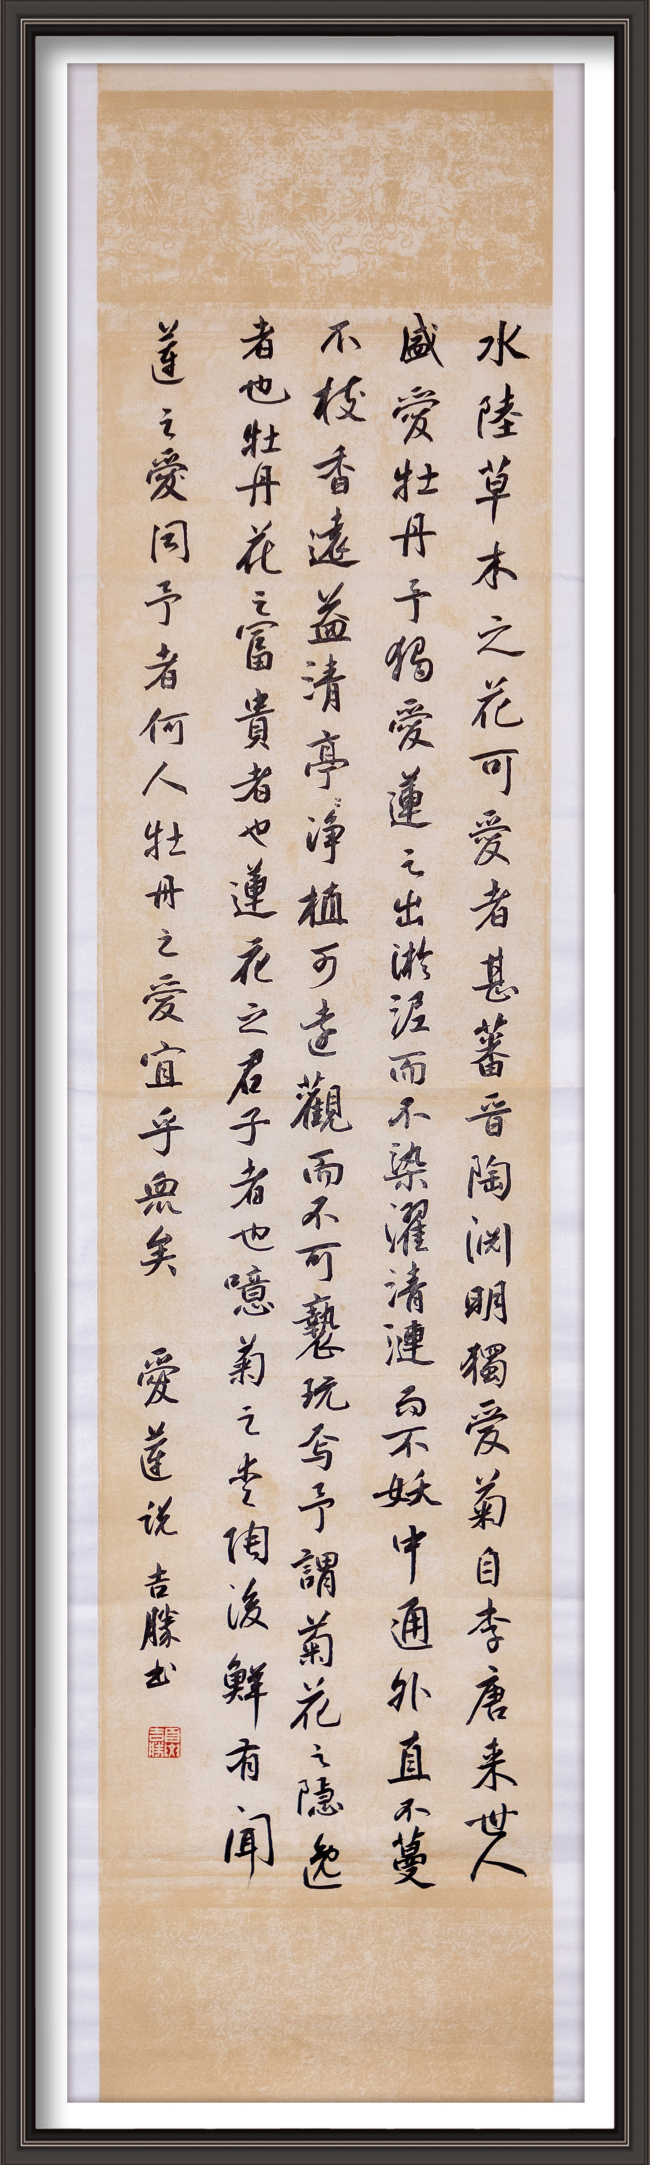 水陸草木之花可愛者甚蕃晋陶渕明獨愛菊自李唐来世人
盛愛牡丹予獨愛蓮之出淤泥而不染濯清漣而不妖中通外直不蔓
不枝香遠益清亭〻淨植可遠觀而不可褻玩焉予謂菊花之隱逸
者也牡丹花之富貴者也蓮花之君子者也噫菊之愛陶後鮮有聞
蓮之愛同予者何人牡丹之愛宜乎衆矣 愛蓮説 吉勝书